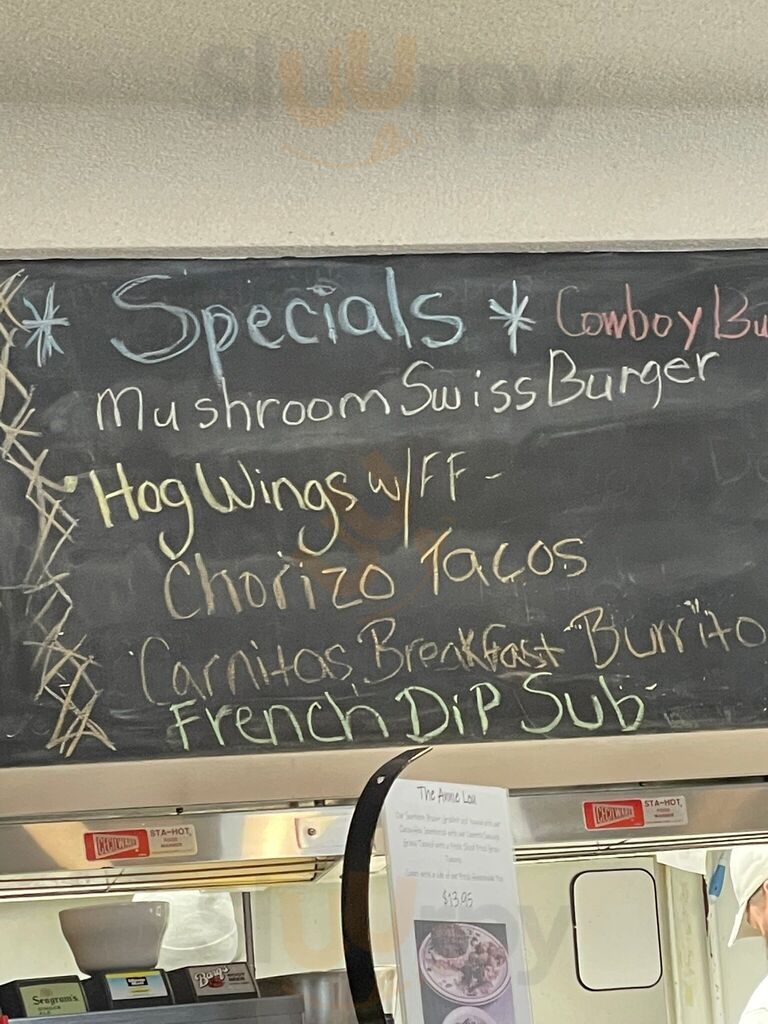 Sluurpy
* Specials * Cowboy Bu
Mushroom Swiss Burger
Hog Wings w/FF -
Chorizo Tacos
Carnitas Breakfast Burrito
French Dip Sub
CECILWARE STA-HOT FOOD WARMER
CECILWARE STA-HOT FOOD WARMER
The Annie Lou
$13.95
Seagram's
GINGER ALE
Barq's
ROOT BEER